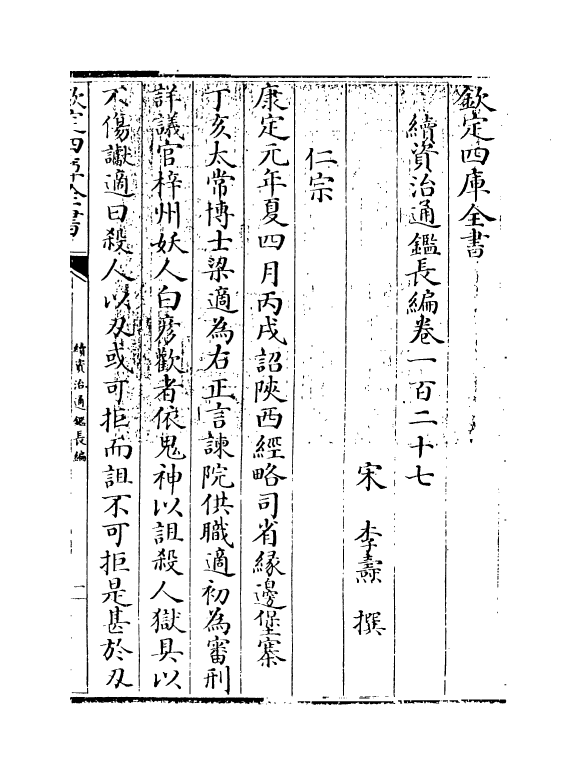 欽定四庫全書
續資治通鑑長編卷一百二十七
宋 李燾 撰
仁宗
康定元年夏四月丙戌詔陝西經略司省緣邊堡寨
丁亥太常博士梁適為右正言諫院供職適初為審刑
詳議官梓州妖人白彥歡者依鬼神以詛殺人獄具以
不傷讞適曰殺人以刃或可拒而詛不可拒是甚於刃
欽定四庫全書
續資治通鑑長編